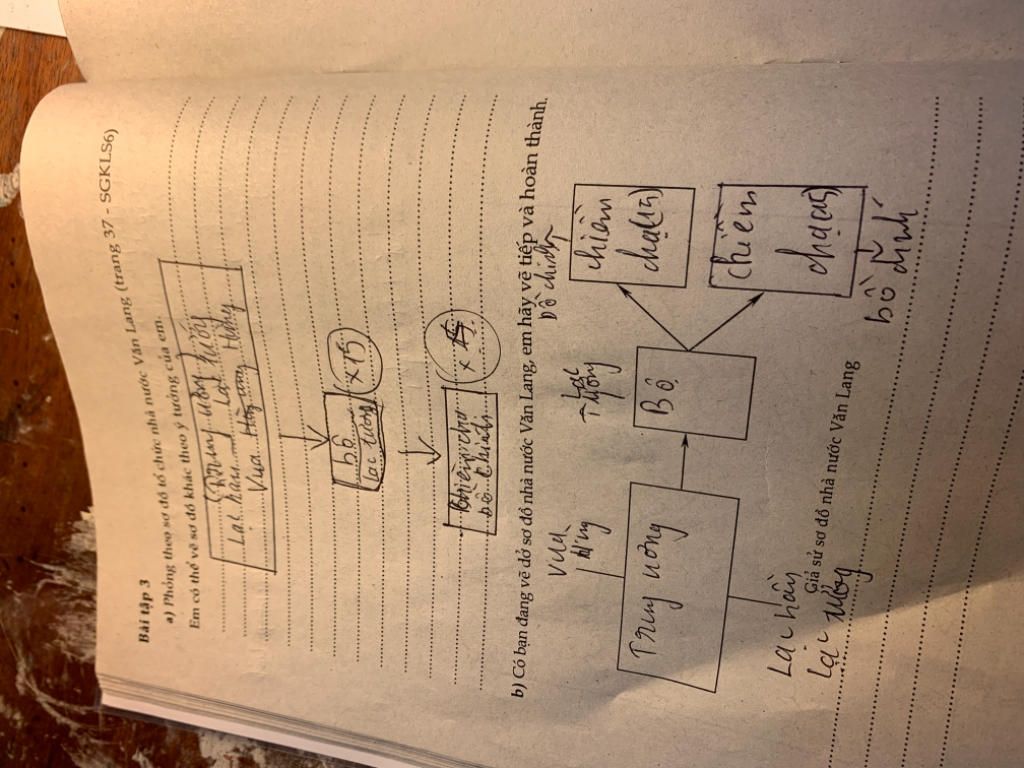 Bài tập 3
a) Phỏng theo sơ đồ tổ chức nhà nước Văn Lang (trang 37 - SGKLS6)
Em có thể vẽ sơ đồ khác theo ý tưởng của em.
Trung ương
Lạc hầu Lạc tướng
Vua Hùng
bộ
Lạc tướng
x 15
chiềng chạ
bồ chính
x 15
b) Có bạn đang vẽ dở sơ đồ nhà nước Văn Lang, em hãy vẽ tiếp và hoàn thành.
Vua
Hùng
Lạc
tướng
bồ chính
Trung ương
Bộ
chiềng
chạ(15)
chiềng
chạ(15)
Lạc hầu
lạc tướng
bồ
chính
Giả sử sơ đồ nhà nước Văn Lang